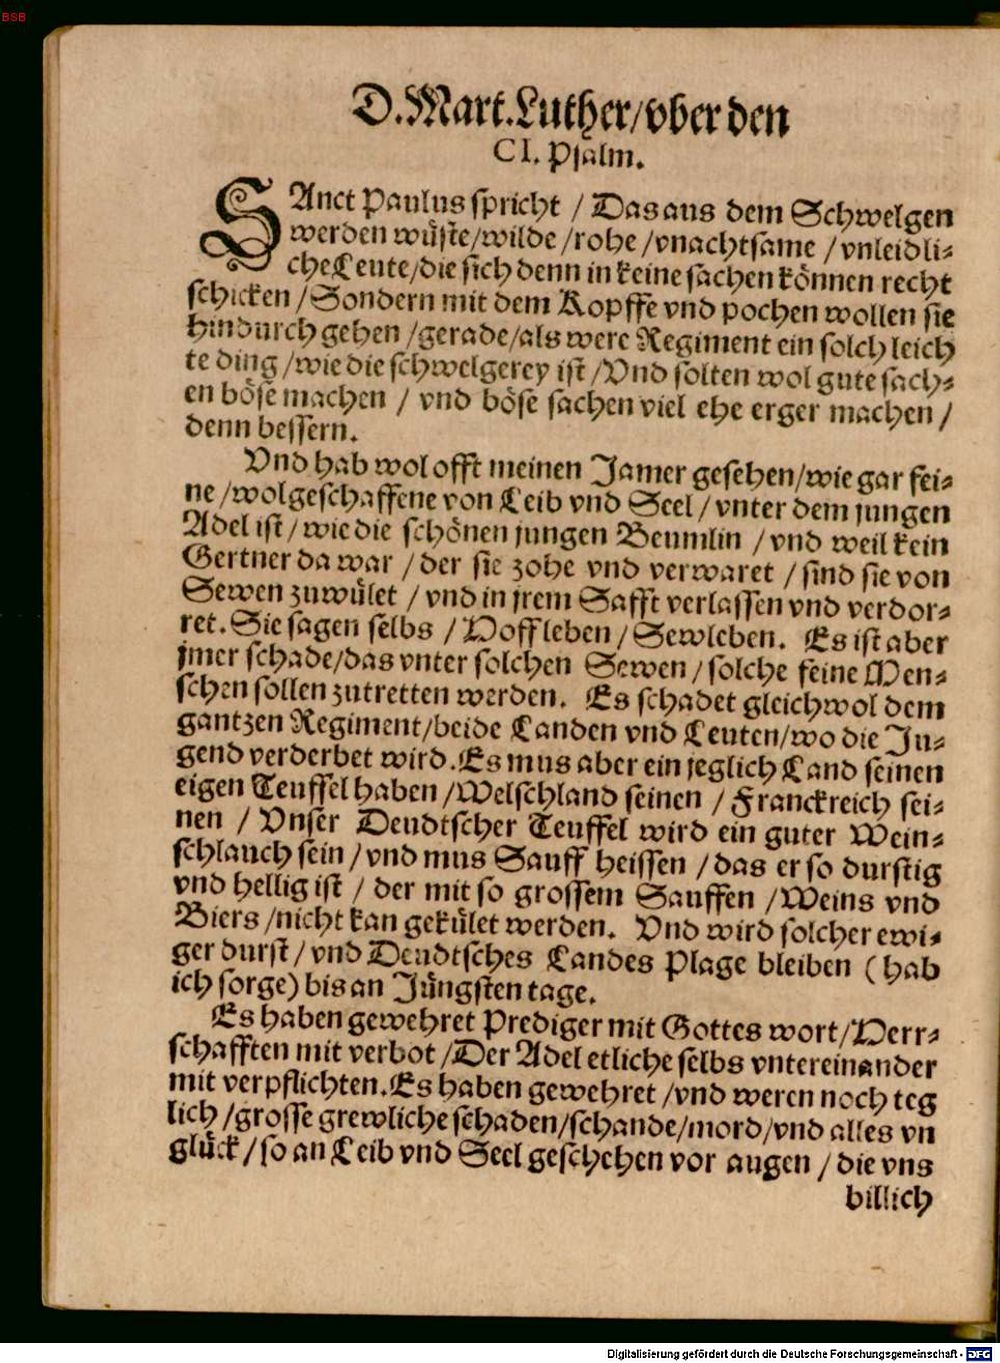 BSB
D. Mart. Luther/vber den
CI. Psalm.
SAnct Paulus spricht / Das aus dem Schwelgen
werden wüste/wilde /rohe /vnachtsame /vnleidli-
che Leute/die sich denn in keine sachen können recht
schicken /Sondern mit dem Kopffe vnd pochen wollen sie
hindurch gehen /gerade/als were Regiment ein solch leich
te ding /wie die schwelgerey ist /Vnd solten wol gute sach-
en böse machen / vnd böse sachen viel ehe erger machen /
denn bessern.
Vnd hab wol offt meinen Jamer gesehen/wie gar fei-
ne /wolgeschaffene von Leib vnd Seel / vnter dem jungen
Adel ist / wie die schönen jungen Beumlin / vnd weil kein
Gertner da war / der sie zohe vnd verwaret / sind sie von
Sewen zuwület / vnd in jrem Safft verlassen vnd verdor-
ret. Sie sagen selbs / Hoffleben / Sewleben. Es ist aber
jmer schade/das vnter solchen Sewen / solche feine Men-
schen sollen zutretten werden. Es schadet gleichwol dem
gantzen Regiment/beide Landen vnd Leuten/wo die Ju-
gend verderbet wird. Es mus aber ein jeglich Land seinen
eigen Teuffel haben /Welschland seinen / Franckreich sei-
nen / Vnser Deudtscher Teuffel wird ein guter Wein-
schlauch sein / vnd mus Sauff heissen / das er so durstig
vnd hellig ist / der mit so grossem Sauffen /Weins vnd
Biers /nicht kan gekület werden. Vnd wird solcher ewi-
ger durst / vnd Deudtsches Landes Plage bleiben (hab
ich sorge) bis an Jüngsten tage.
Es haben gewehret Prediger mit Gottes wort/Herr-
schafften mit verbot /Der Adel etliche selbs vntereinander
mit verpflichten. Es haben gewehret /vnd weren noch teg
lich /grosse grewliche schaden/schande/mord/vnd alles vn
glück / so an Leib vnd Seel geschehen vor augen / die vns
billich
Digitalisierung gefördert durch die Deutsche Forschungsgemeinschaft - DFG